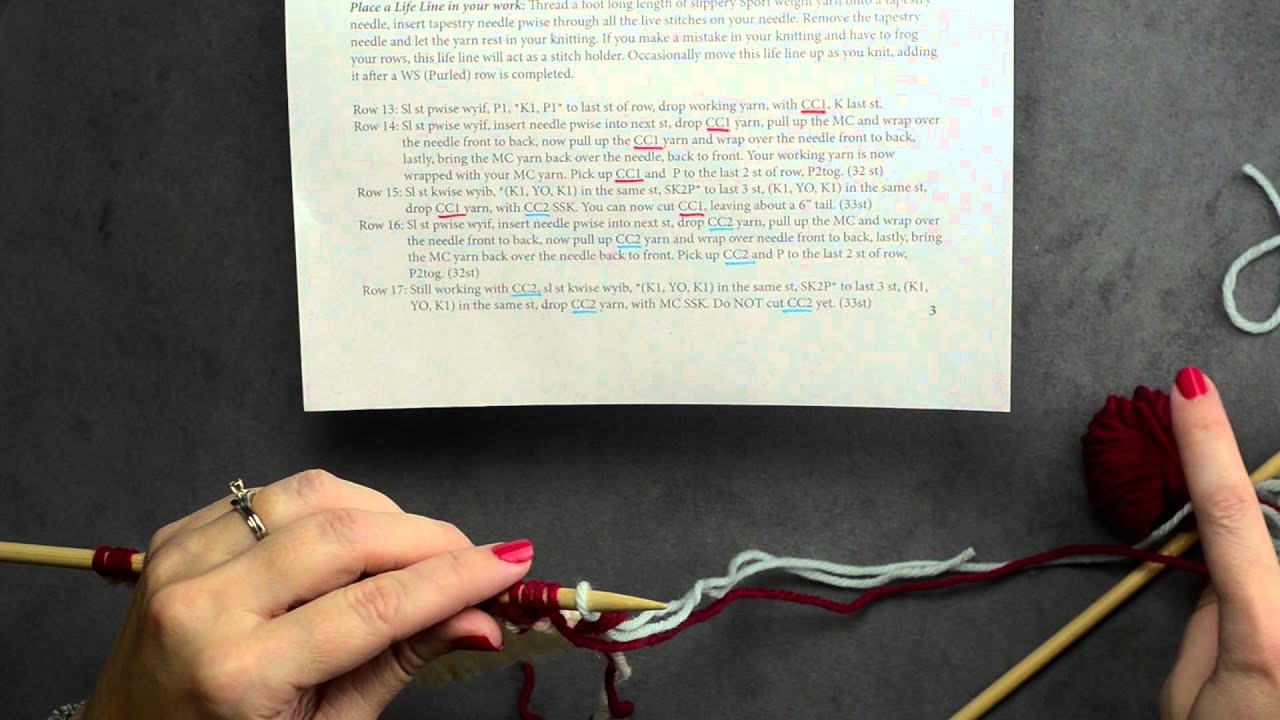 Place a Life Line in your work: Thread a foot long length of slippery Sport weight yarn onto a tapestry
needle, insert tapestry needle pwise through all the live stitches on your needle. Remove the tapestry
needle and let the yarn rest in your knitting. If you make a mistake in your knitting and have to frog
your rows, this life line will act as a stitch holder. Occasionally move this life line up as you knit, adding
it after a WS (Purled) row is completed.
Row 13: Sl st pwise wyif, P1, *K1, P1* to last st of row, drop working yarn, with CC1, K last st.
Row 14: Sl st pwise wyif, insert needle pwise into next st, drop CC1 yarn, pull up the MC and wrap over
the needle front to back, now pull up the CC1 yarn and wrap over the needle front to back,
lastly, bring the MC yarn back over the needle, back to front. Your working yarn is now
wrapped with your MC yarn. Pick up CC1 and P to the last 2 st of row, P2tog. (32 st)
Row 15: Sl st kwise wyib, *(K1, YO, K1) in the same st, SK2P* to last 3 st, (K1, YO, K1) in the same st,
drop CC1 yarn, with CC2 SSK. You can now cut CC1, leaving about a 6" tail. (33st)
Row 16: Sl st pwise wyif, insert needle pwise into next st, drop CC2 yarn, pull up the MC and wrap over
the needle front to back, now pull up CC2 yarn and wrap over needle front to back, lastly, bring
the MC yarn back over the needle back to front. Pick up CC2 and P to the last 2 st of row,
P2tog. (32st)
Row 17: Still working with CC2, sl st kwise wyib, *(K1, YO, K1) in the same st, SK2P* to last 3 st, (K1,
YO, K1) in the same st, drop CC2 yarn, with MC SSK. Do NOT cut CC2 yet. (33st)
3